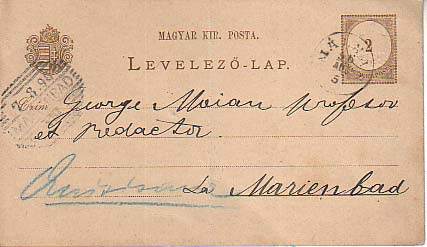 MAGYAR KIR. POSTA.
LEVELEZŐ-LAP.
2
Czim
George Moian profesor
et Redactor.
La Marienbad